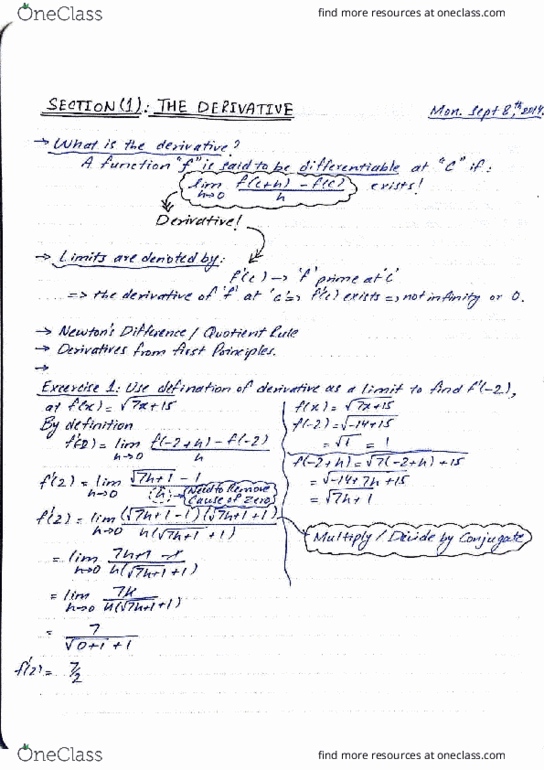 OneClass
find more resources at oneclass.com
SECTION(1): THE DERIVATIVE
Mon. Sept 8,th 2014.
→ What is the derivative?
A function "f" is said to be differentiable at "c" if:
lim h→0 f(c+h) - f(c) / h exists!
Derivative!
→ Limits are denoted by:
f'(c) → 'f' prime at 'c'
=> the derivative of 'f' at 'c' => f'(c) exists => not infinity or 0.
→ Newton's Difference / Quotient Rule
→ Derivatives from first Principles.
→
Excercise 1: Use defination of derivative as a limit to find f'(-2),
at f(x) = √7x+15
By definition
f'(2) = lim h→0 f(-2+h) - f(-2) / h
f'(2) = lim h→0 √7h+1 - 1 / h
Need to Remove
Cause of Zero
f'(2) = lim h→0 (√7h+1 - 1)(√7h+1 + 1) / h(√7h+1 + 1)
= lim h→0 7h+1 - 1 / h(√7h+1 + 1)
= lim h→0 7h / h(√7h+1 + 1)
= 7 / √0+1 + 1
f'(2) = 7/2
f(x) = √7x+15
f(-2) = √-14+15
= √1 = 1
f(-2+h) = √7(-2+h)+15
= √-14+7h+15
= √7h+1
Multiply / Divide by Conjugate
OneClass
find more resources at oneclass.com